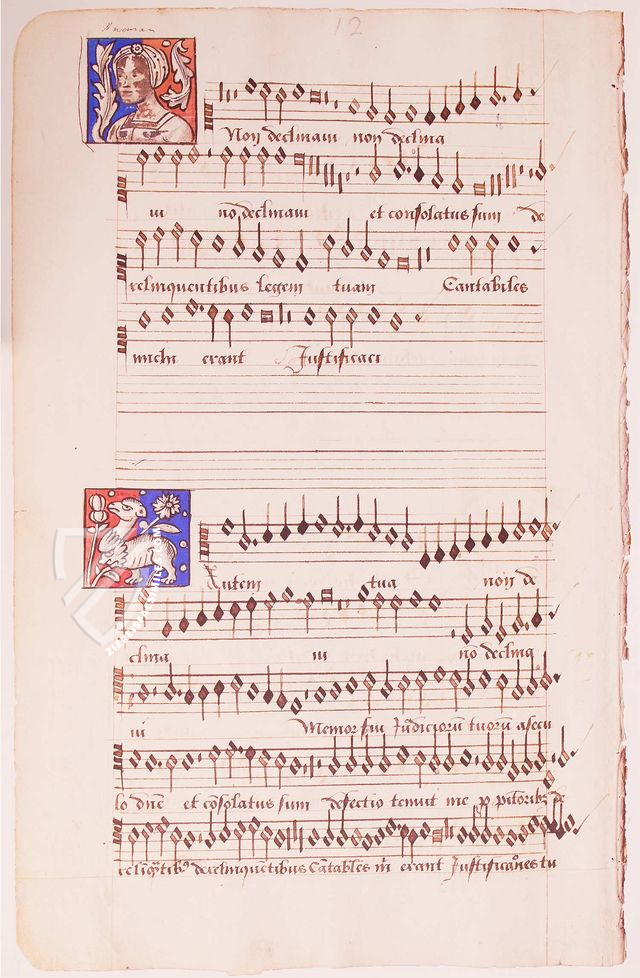 12
Non declinavi non declina
vi no declinavi et consolatus sum de
relinquentibus legem tuam Cantabiles
michi erant Justificaci
Autem tua non de
clina vi no declina
vi Memor fui Judiciorū tuorū a secu
lo dn̄e et cōsolatus sum defectio tenuit me p
derelinquentibus Cātabiles erant Justificaōnes tu